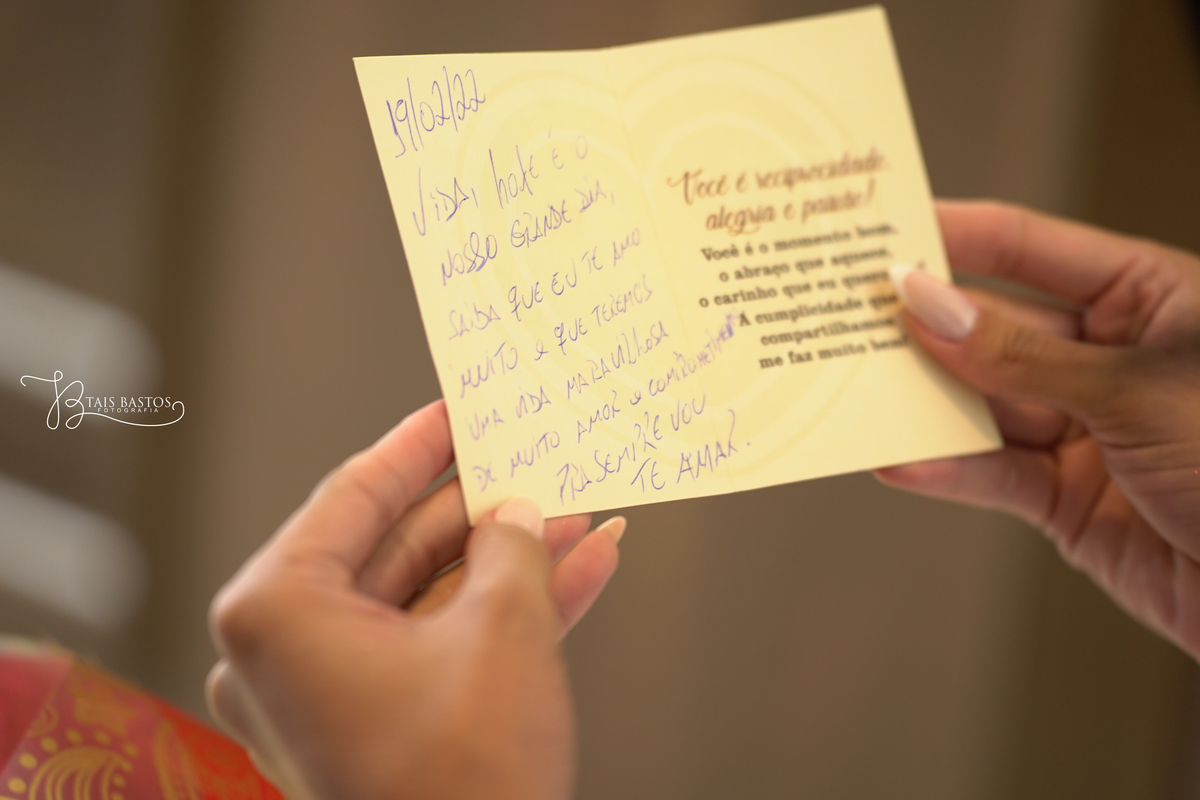 19/02/22
VIDA, hoje É O
NOSSO GRANDE DIA,
SAIBA QUE EU TE AMO
MUITO e QUE TEREMOS
UMA VIDA MARAVILHOSA
DE MUITO AMOR e
PRA SEMPRE VOU
TE AMAR.
Você é reciprocidade,
alegria e paixão!
Você é o momento bom,
o abraço que aquece,
o carinho que eu quero
A cumplicidade que
compartilhamos
me faz muito bem!
TAIS BASTOS
FOTOGRAFIA